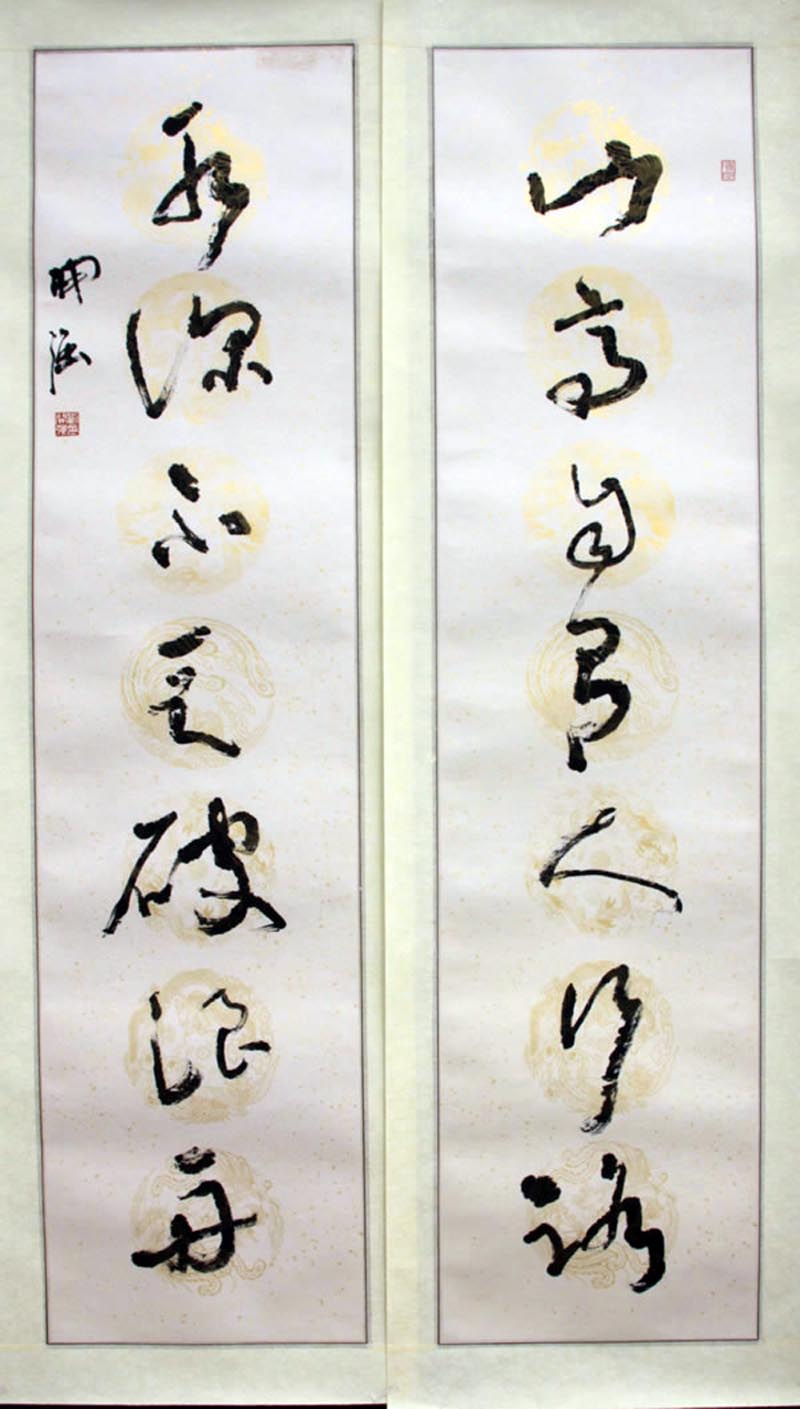 山高自有人行路
水深不乏破浪舟